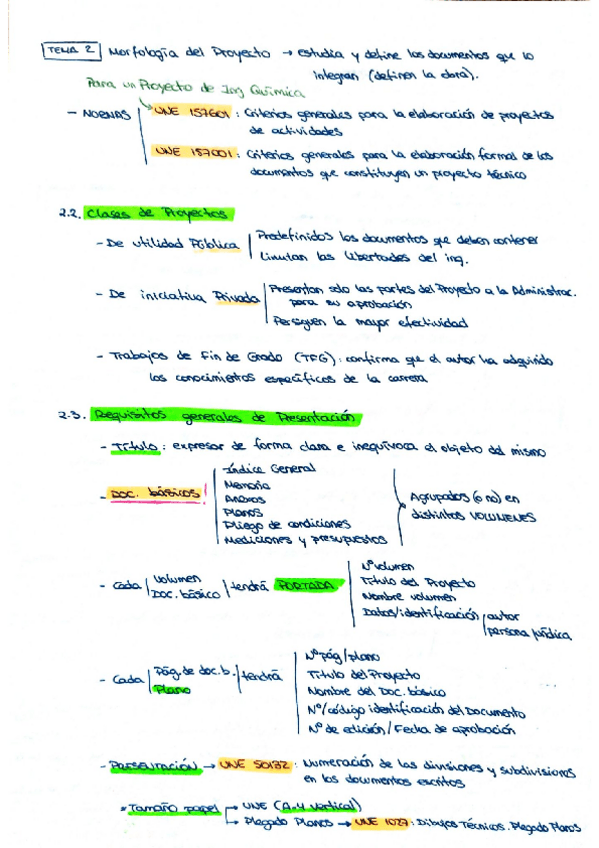 TEMA 2 Morfología del Proyecto → estudia y define los documentos que lo
integran (definen la obra).
Para un Proyecto de Ing Química
- NORMAS UNE 157601: Criterios generales para la elaboración de proyectos
de actividades
UNE 157001: Criterios generales para la elaboración formal de los
documentos que constituyen un proyecto técnico
2.2. Clases de Proyectos
- De utilidad Pública Predefinidos los documentos que deben contener
Limitan las libertades del ing.
- De iniciativa Privada Presentan solo las partes del Proyecto a la Administrac.
para su aprobación
Persiguen la mayor efectividad
- Trabajos de Fin de Grado (TFG): confirma que el autor ha adquirido
los conocimientos específicos de la carrera
2.3. Requisitos generales de Presentación
- Título: expresar de forma clara e inequívoca el objeto del mismo
- DOC. básicos
Índice General
Memoria
Anexos
Planos
Pliego de condiciones
Mediciones y presupuestos
Agrupados (o no) en
distintos VOLUMENES
- Cada volumen
Doc. básico
tendrá PORTADA
Nº volumen
Título del Proyecto
Nombre volumen
Datos/identificación autor
persona jurídica
- Cada Pág. de doc. b.
Plano
tendrá
Nº pág/plano
Título del Proyecto
Nombre del Doc. básico
Nº/código identificación del Documento
Nº de edición/Fecha de aprobación
- PRESENTACIÓN → UNE 50132: Numeración de las divisiones y subdivisiones
en los documentos escritos
Tamaño papel → UNE (A-4 vertical)
→ Plegado Planos → UNE 1027: Dibujos Técnicos. Plegado Planos